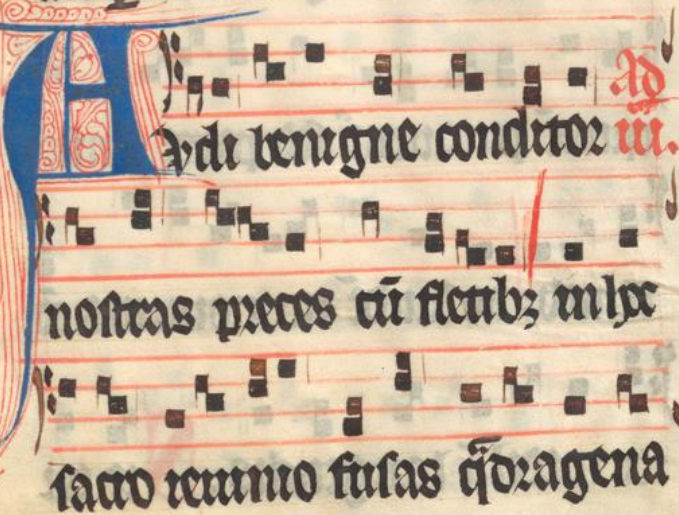 Audi benigne conditor Ad iii.
nostras preces cū fletibꝫ in hoc
sacro ieiunio fusas q̄dragena